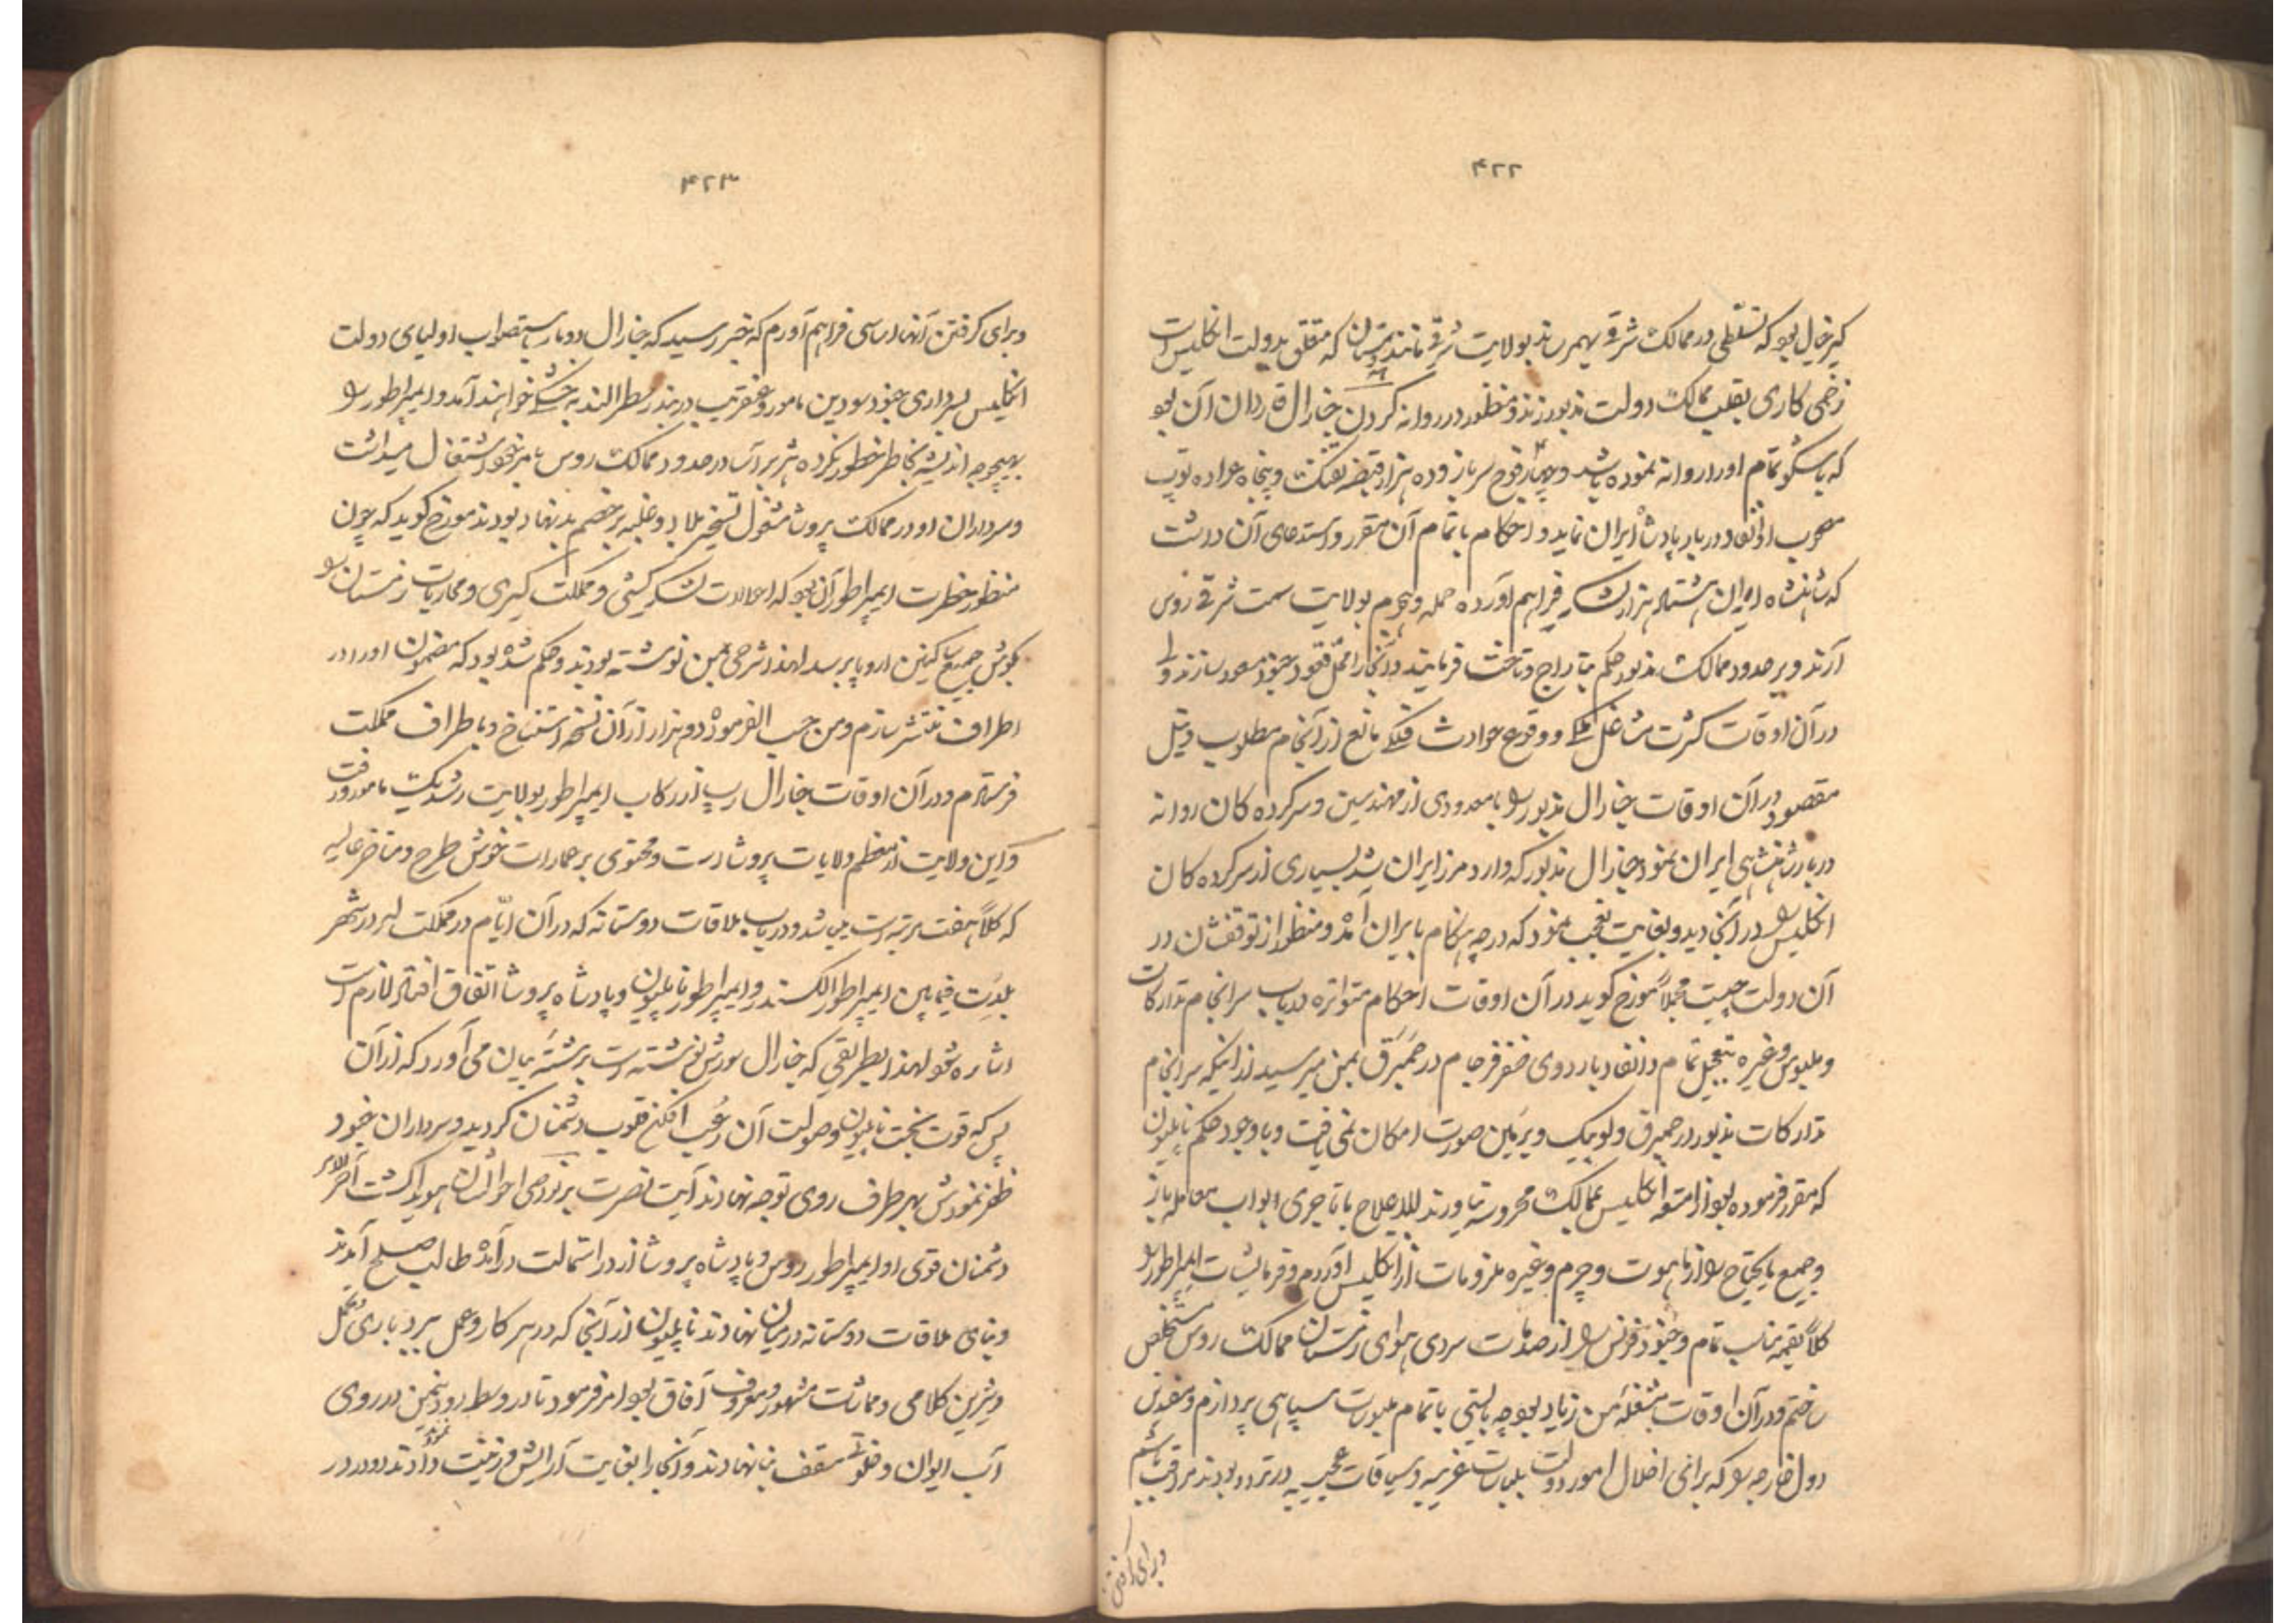 ۴۲۲
که خیال بود که تسلطی در ممالک شرقی بهمرساند بولایت شرقی مانند هندوستان که متعلق بدولت انگلیس است
زخمی کاری بقلب ممالک دولت مذبور زند و منظور در روانه کردن جنارال غاردان آن بود
که با شکوه تمام او را روانه نموده باشد و چهار فوج سرباز و ده هزار قبضه تفنگ و پنجاه عراده توپ
مصحوب او انفاد دربار پادشاه ایران نماید و احکام با تمام آن مقرر و استدعای آن داشت
که شاهنشاه ایران هشتاد هزار لشکر فراهم آورده حمله و هجوم بولایت سمت شرقی روس
آرند و بر حدود ممالک مذبور حکم بتاراج و تاخت فرمایند و آنجا را محل قعود جنود مسعود سازند ولی
در آن اوقات کثرت مشاغل ملکی و وقوع حوادث فلکی مانع از انجام مطلوب و نیل
مقصود در آن اوقات جنارال مذبور را با معدودی از مهندسین و سرکرده کان روانه
دربار شاهنشاهی ایران نمود جنارال مذبور که وارد مرز ایران شد بسیاری از سرکرده کان
انگلیس را در آنجا دید و بغایت تعجب نمود که در چه هنگام بایران آمده و منظور از توقفشان در
آن دولت چیست مجملاً مورخ گوید در آن اوقات احکام متواتره در باب سرانجام تدارکات
و ملبوس و غیره بتعجیل تمام و انفاد باردوی ظفر فرجام در حمبرق بمن میرسید از اینکه سرانجام
تدارکات مذبور در حمبرق و لوبیک و برمین صورت امکان نمی یافت و با وجود حکم ناپلیون
که مقرر فرموده بود از امتعه انگلیس بممالک محروسه نیاورند للاعلاج با تاجری ابواب معامله باز
و جمیع مایحتاج را از ماهوت و چرم و غیره ملزومات از انگلیس آوردم و فرمایشات امپراطور را
کلاً بقیمت مناسب تمام و جنود فرنس را از صدمات سردی هوای زمستان ممالک روس مستخلص
ساختم و در آن اوقات مشغله من زیاد بود چه بایستی با تمام ملبوسات سپاهی پردازم و مفسدین
دول خارجه را که برای اخلال امور دولت بلباسات غریبه و سیاقات عجیبه در تردد بودند مراقب باشم
و برای گرفتن
۴۲۳
و برای گرفتن آنها اساسی فراهم آورم که خبر رسید که جنارال دوما باستصواب اولیای دولت
انگلیس بسرداری جنود سودین مامور و عنقریب در بندر سطرالسند به خشکی خواهند آمد و امپراطور را
بهیچوجه اندیشه بخاطر خطور نکرده هژبر آسا در حدود ممالک روس بامر خود اشتغال میداشت
و سرداران او در ممالک پروشا مشغول تسخیر بلاد و غلبه بر خصم بدنهاد بودند مورخ گوید که چون
منظور حضرت امپراطور آن بود که احوالات لشکر کشی و مملکت گیری و محاربات زمستان را
بگوش جمیع ساکنین اروپا برسد لهذا شرحی بمن نوشته بودند و حکم شده بود که مضمون او را در
اطراف منتشر سازم و من حسب الفرموده دو هزار از آن نسخه استنساخ و باطراف مملکت
فرستادم و در آن اوقات جنارال رپ از رکاب امپراطور بولایت دانسیک مامور و رفت
و این ولایت از معظم ولایات پروشا است و محتوی بر عمارات خوش طرح و مناظر عالیه
که کلاً هفت مرتبه است میباشد و در باب ملاقات دوستانه که در آن ایام در مملکت لهر در شهر
تلسیت فیمابین امپراطور الکسندر و امپراطور ناپلیون و پادشاه پروشا اتفاق افتاد لازم است
اشاره شود لهذا بطریقی که جنارال سورش نوشته است برشته بیان می آورد که از آن
پس که قوت بخت ناپلیون و صولت آن رعب افکن قلوب دشمنان گردید و سرداران جنود
ظفر نمودش بهر طرف روی توجه نهادند آیت نصرت بر نواصی احوالشان هویدا گشت آخرالامر
دشمنان قوی او امپراطور روس و پادشاه پروشا از در استمالت درآمده طالب صلح آمدند
و بنای ملاقات دوستانه در میان نهادند ناپلیون از آنجا که در هر کار و عمل ببردباری و تحمل
و شیرین کلامی و مماشات مشهور و معروف آفاق بود امر فرمود تا در وسط رود نیمن در روی
آب ایوان و خلوتی مسقف بنا نهادند و آنجا را بغایت آرایش و زینت دادند و در در